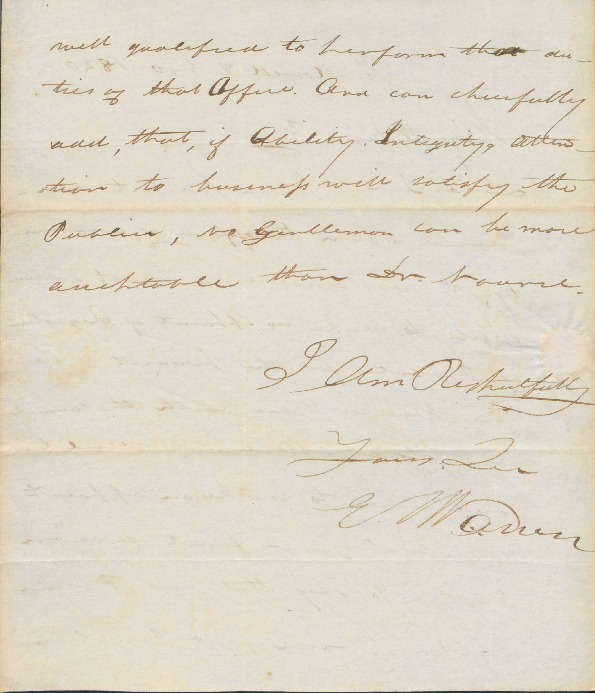 well qualified to perform that du-
ties of that Office. And can cheerfully
add, that, if Ability, Integrity, & atten-
tion to business will satisfy the
Publick, no Gentleman can be more
acceptable than Dr. Nourse.
I Am Respectfully
Yours. &c
E. Warren